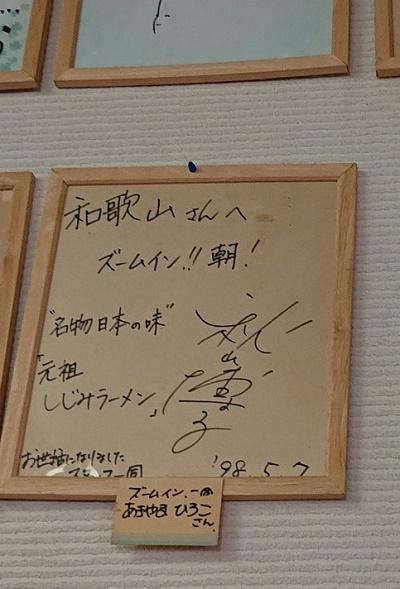 和歌山さんへ
ズームイン!! 朝!
"名物日本の味"
「元祖
しじみラーメン」
秋山博子
お世話になりました
スタッフ一同
'98 5.7
ズームイン、一同
あきやま ひろこ
さん。